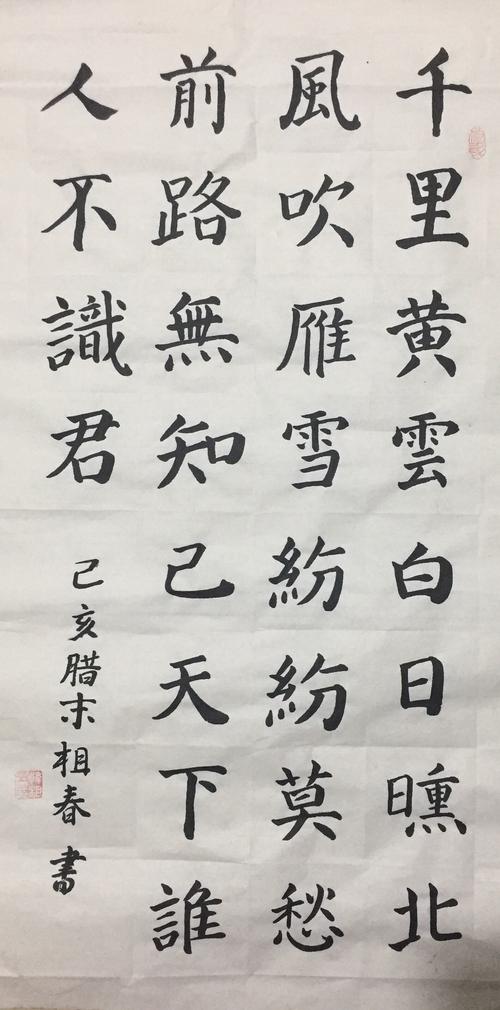 千里黄雲白日曛北
風吹雁雪紛紛莫愁
前路無知己天下誰
人不識君
己亥腊末相春書